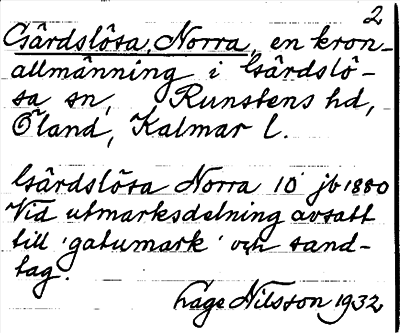 2
Gärdslösa, Norra, en kron-
allmänning i Gärdslö-
sa sn, Runstens hd,
Öland, Kalmar l.
Gärdslösa Norra 10 jb 1880
Vid utmarksdelning avsatt
till 'gatumark' och sand-
tag.
Lage Nilsson 1932